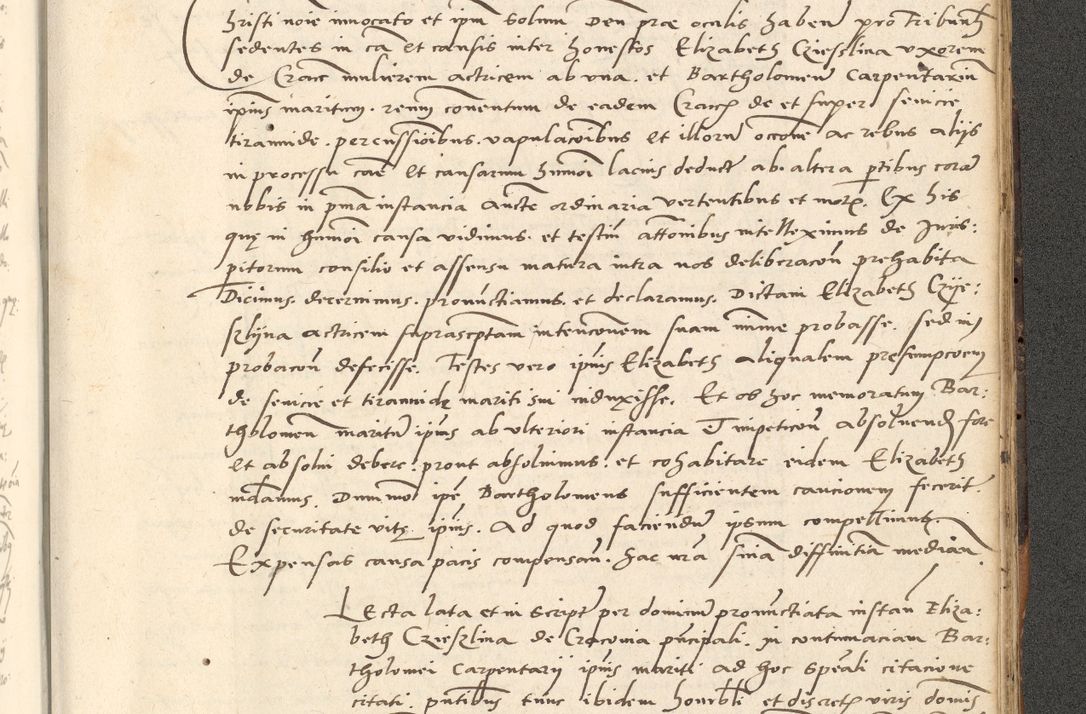 hristi noie invocato et ipm solum Deu prae oculis haben pro Tribunli
sedentes in ca et causis inter honestos Elizabeth Cziesslina uxorem
de Crace mulierem actricem ab una. et Bartholomeu Carpentariu
ipius maritum. reum conventum de eadem Crace de et super sevicie
tirannide. percussioibus. vapulacoibus et illoru occone ac rebus aliis
in processu cae et causarum humoi lacius deduct ab. altera ptibus cora
nobis in pma instancia aucte ordinaria vertentibus et mot. Ex his
quę in humoi causa vidimus. et testiu attonibus intelleximus de Juris:
pitorum consilio et assensu matura intra nos deliberacon prehabita
Dicimus. decernimus. pronunctiamus. et declaramus. Dictam Elizabeth Czije:
szlijna actricem suprascptam intenconem suam minime probasse. sed in
probacon defecisse. Testes vero ipius Elizabeth aliqualem presumpcoem
de sevicie et tirannidę mariti sui induxisse. Et ob hoc memoratum Bar:
tholomeu maritu ipius ab ulteriori instancia et impeticon absolvend fore
et absolvi debere: prout absolvimus. et cohabitare eidem Elizabeth
mdamus. Dummo ipe Bartholomeus sufficientem caucionem fecerit
de securitate vitę ipius. Ad quod faciendu ipsum compellimus.
Expensas causa pacis compensan. hac nra snia diffinitia median.
Lecta lata et in script per dominu pronunctiata instan Eliza:
beth Czieszlina de Cracovia pncipali. in contumaciam Bar:
tholomei Carpentarij ipius mariti ad hoc speali citacione
citati. pntibus tunc ibidem honorbli et discret viris domis